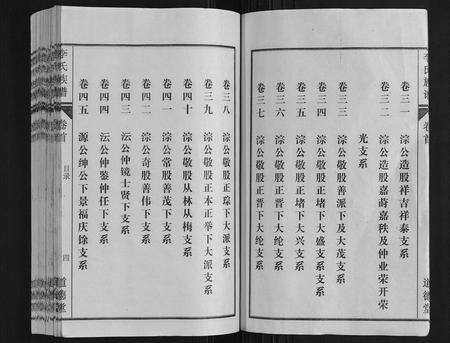 李氏族谱
卷首
道德堂
卷三一 淙公造股祥吉祥泰支系
卷三二 淙公造股嘉莳嘉秩及仲业荣开荣
光支系
卷三三 淙公敬股善派下及大茂支系
卷三四 淙公敬股正堵下大盛支系
卷三五 淙公敬股正堵下大兴支系
卷三六 淙公敬股正晋下大纶支系
卷三七 淙公敬股正晋下大纶支系
卷三八 淙公敬股正琮下大派支系
卷三九 淙公敬股正本正举下大派支系
卷四十 淙公敬股从林从梅支系
卷四一 淙公常股善茂下支系
卷四二 淙公奇股善伟下支系
卷四三 沄公仲镜士贤下支系
卷四四 沄公仲鉴仲任下支系
卷四五 源公绅公下景福庆馀支系
李氏族谱
卷首
目录
四
道德堂